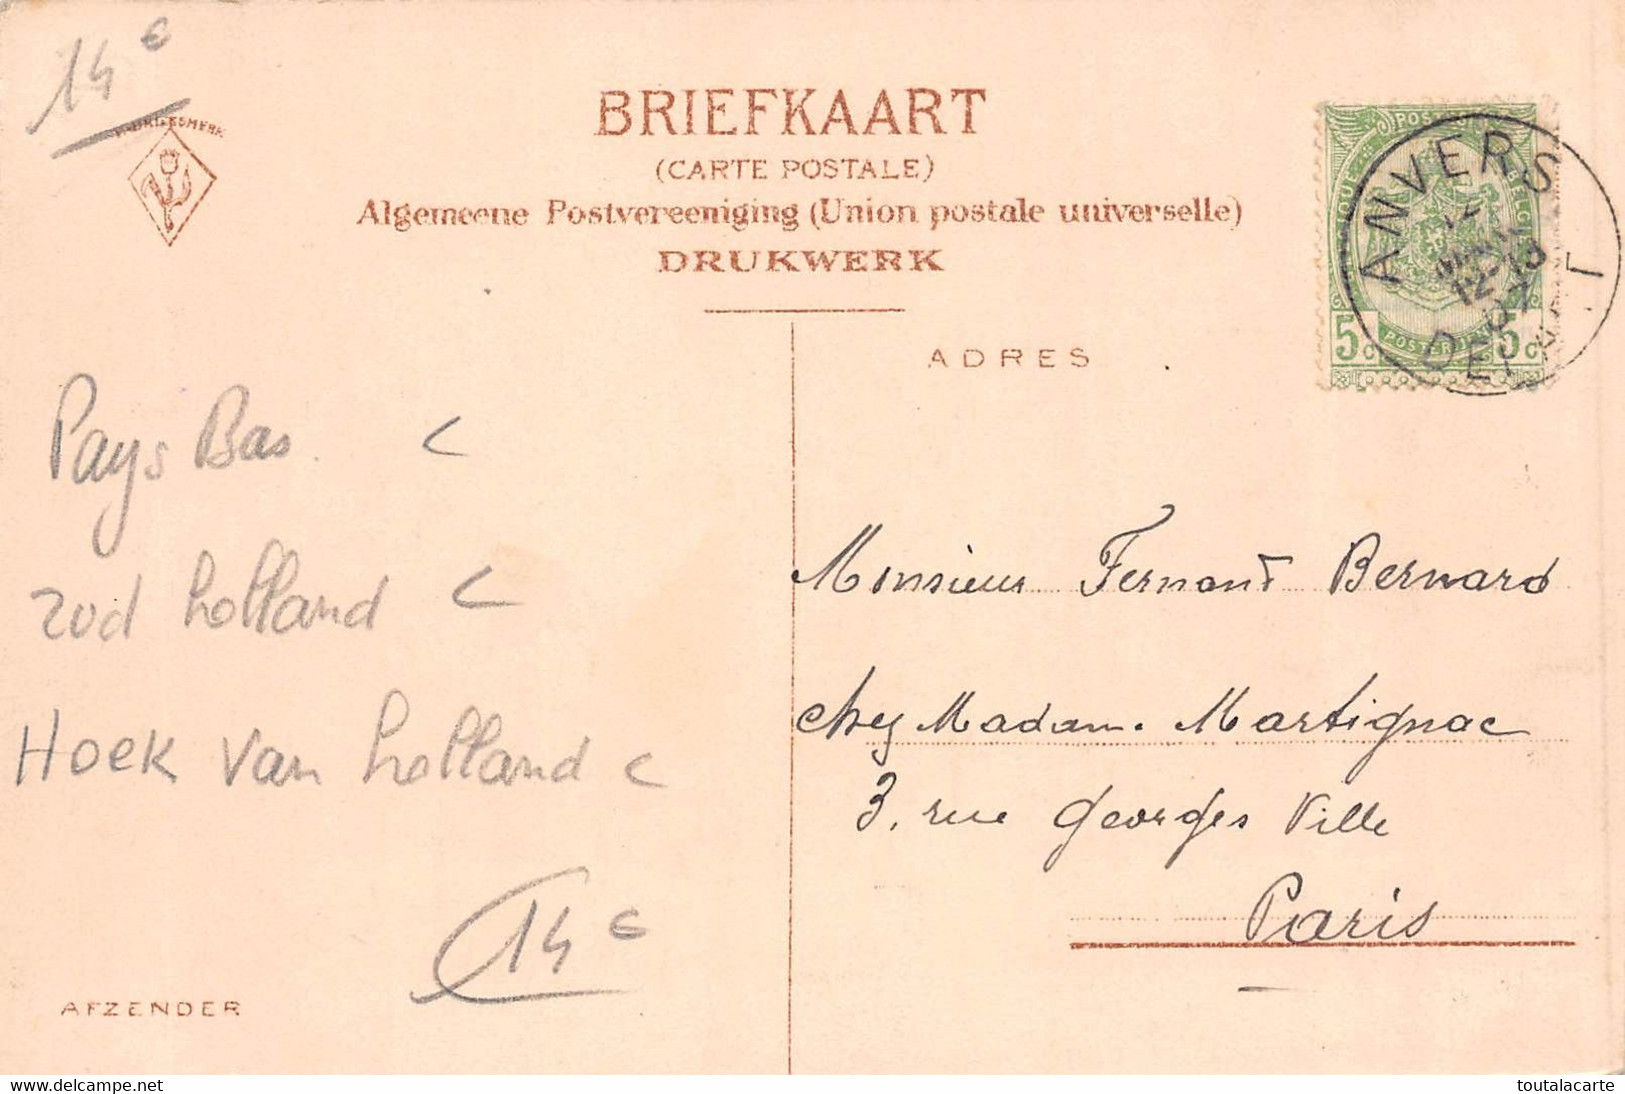 14 €
FABRIEKSMERK
BRIEFKAART
(CARTE POSTALE)
Algemeene Postvereeniging (Union postale universelle)
DRUKWERK
ADRES
ANVERS
12-13
07
DEPART
5c 5c
Pays Bas <
zud holland <
Hoek van holland <
14 €
AFZENDER
Monsieur Fernand Bernard
chez Madame Martignac
3, rue Georges Ville
Paris
www.delcampe.net
toutalacarte